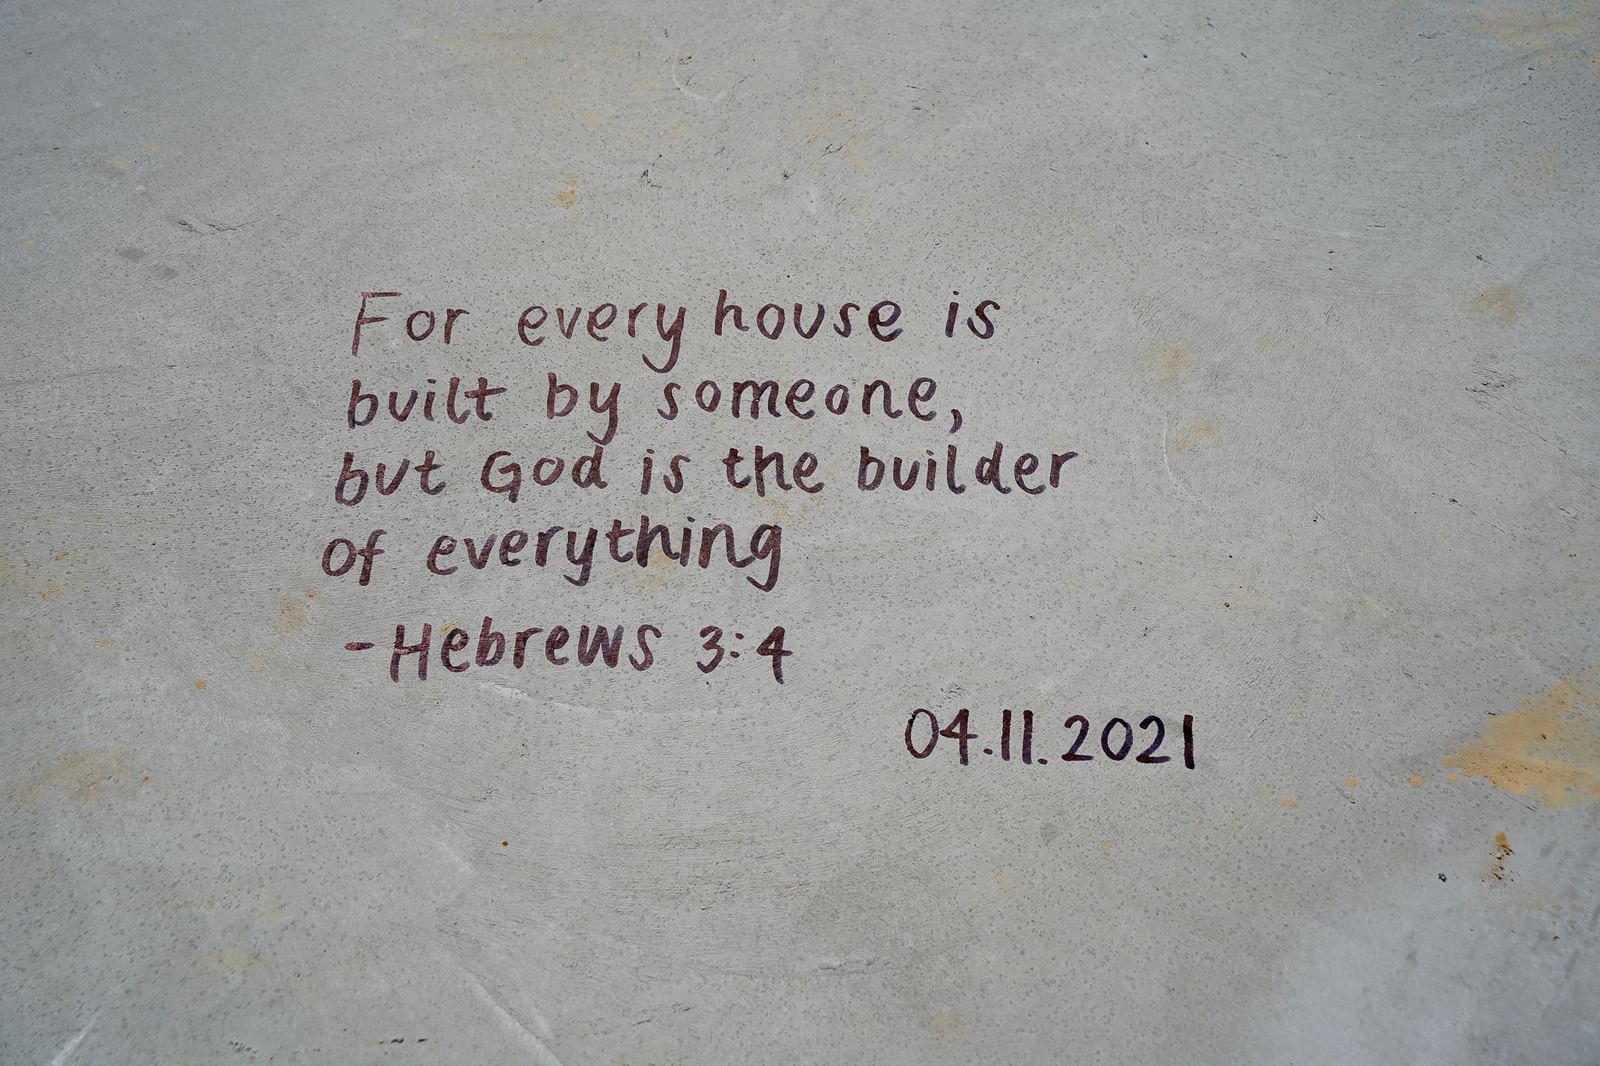 For every house is
built by someone,
but God is the builder
of everything
- Hebrews 3:4
04.11.2021